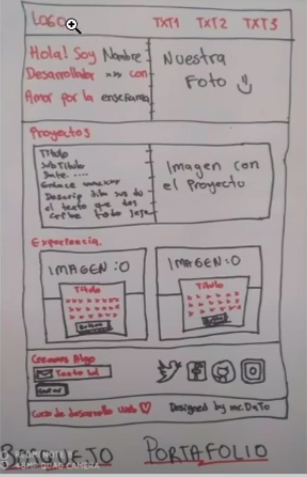 LOGO TXT1 TXT2 TXT3
Hola! Soy Nombre
Desarrollador con
Amor por la enseñanza
Nuestra
Foto
Proyectos
Título
SubTítulo
Date. ....
Enlace
Descrip
el texto que
todo jeje
Imagen con
el Proyecto
Experiencia.
IMAGEN :O
Título
IMAGEN :O
Título
Creamos Algo
Texto
Curso de desarrollo web Designed by mr. DaTo
BOSQUEJO PORTAFOLIO
QUAD CAMERA